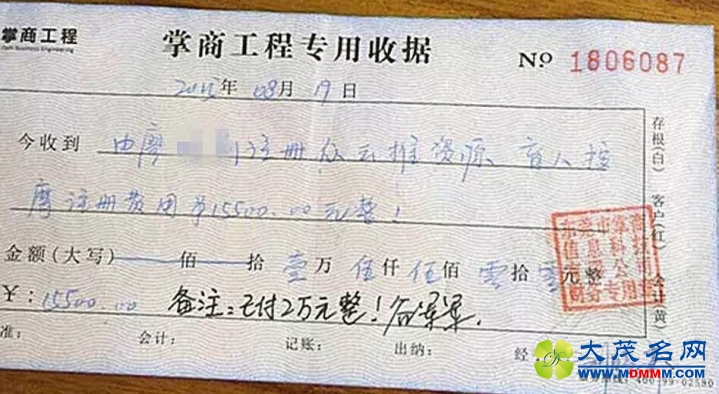 掌商工程
掌商工程专用收据
№ 1806087
年08月19日
今收到 由廖 注册众云推资源、盲人按
摩注册费用￥15500.00元整！
金额(大写) 佰 拾 壹万 伍仟 伍佰 零拾 零元 整
￥:15500.00 备注:已付2万元整！
准: 会计: 记账: 出纳: 经
存根(白) 客户(红) 会计(黄)
东莞市掌商
信息科技
有限公司
财务专用章
大茂名网
www.MDMMM.com
400-99-02580